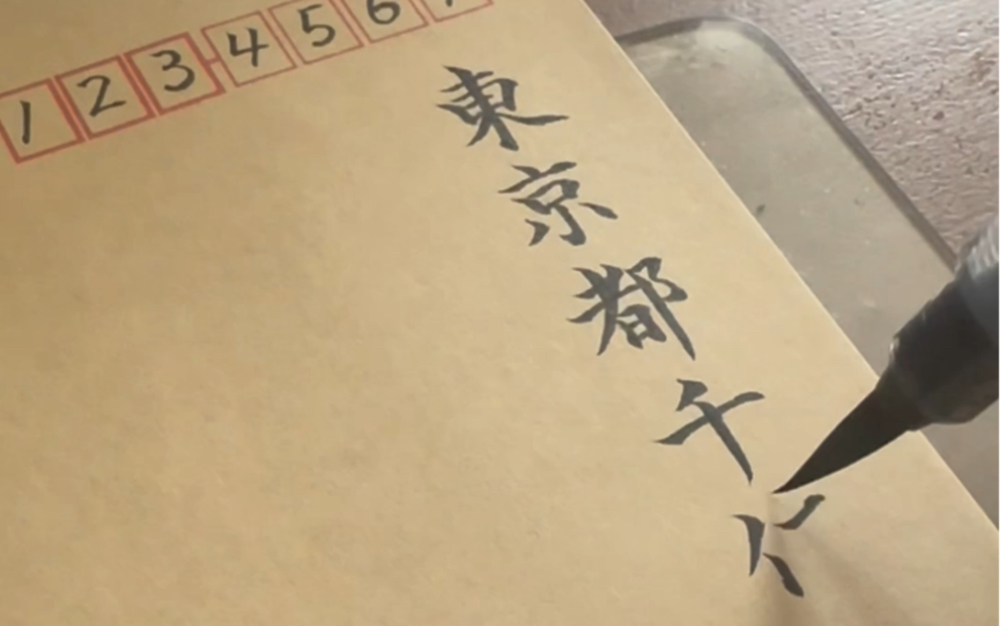 123-456
東京都千